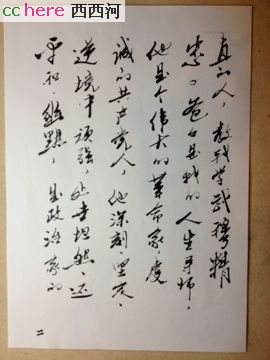 cchere 西西河
真的人，教我学武穆精
忠。爸爸是我的人生导师，
他是个伟大的革命家，虔
诚的共产党人，他深刻、坚定、
逆境中顽强，处世坦然、还
平和、幽默，是政治家的
二